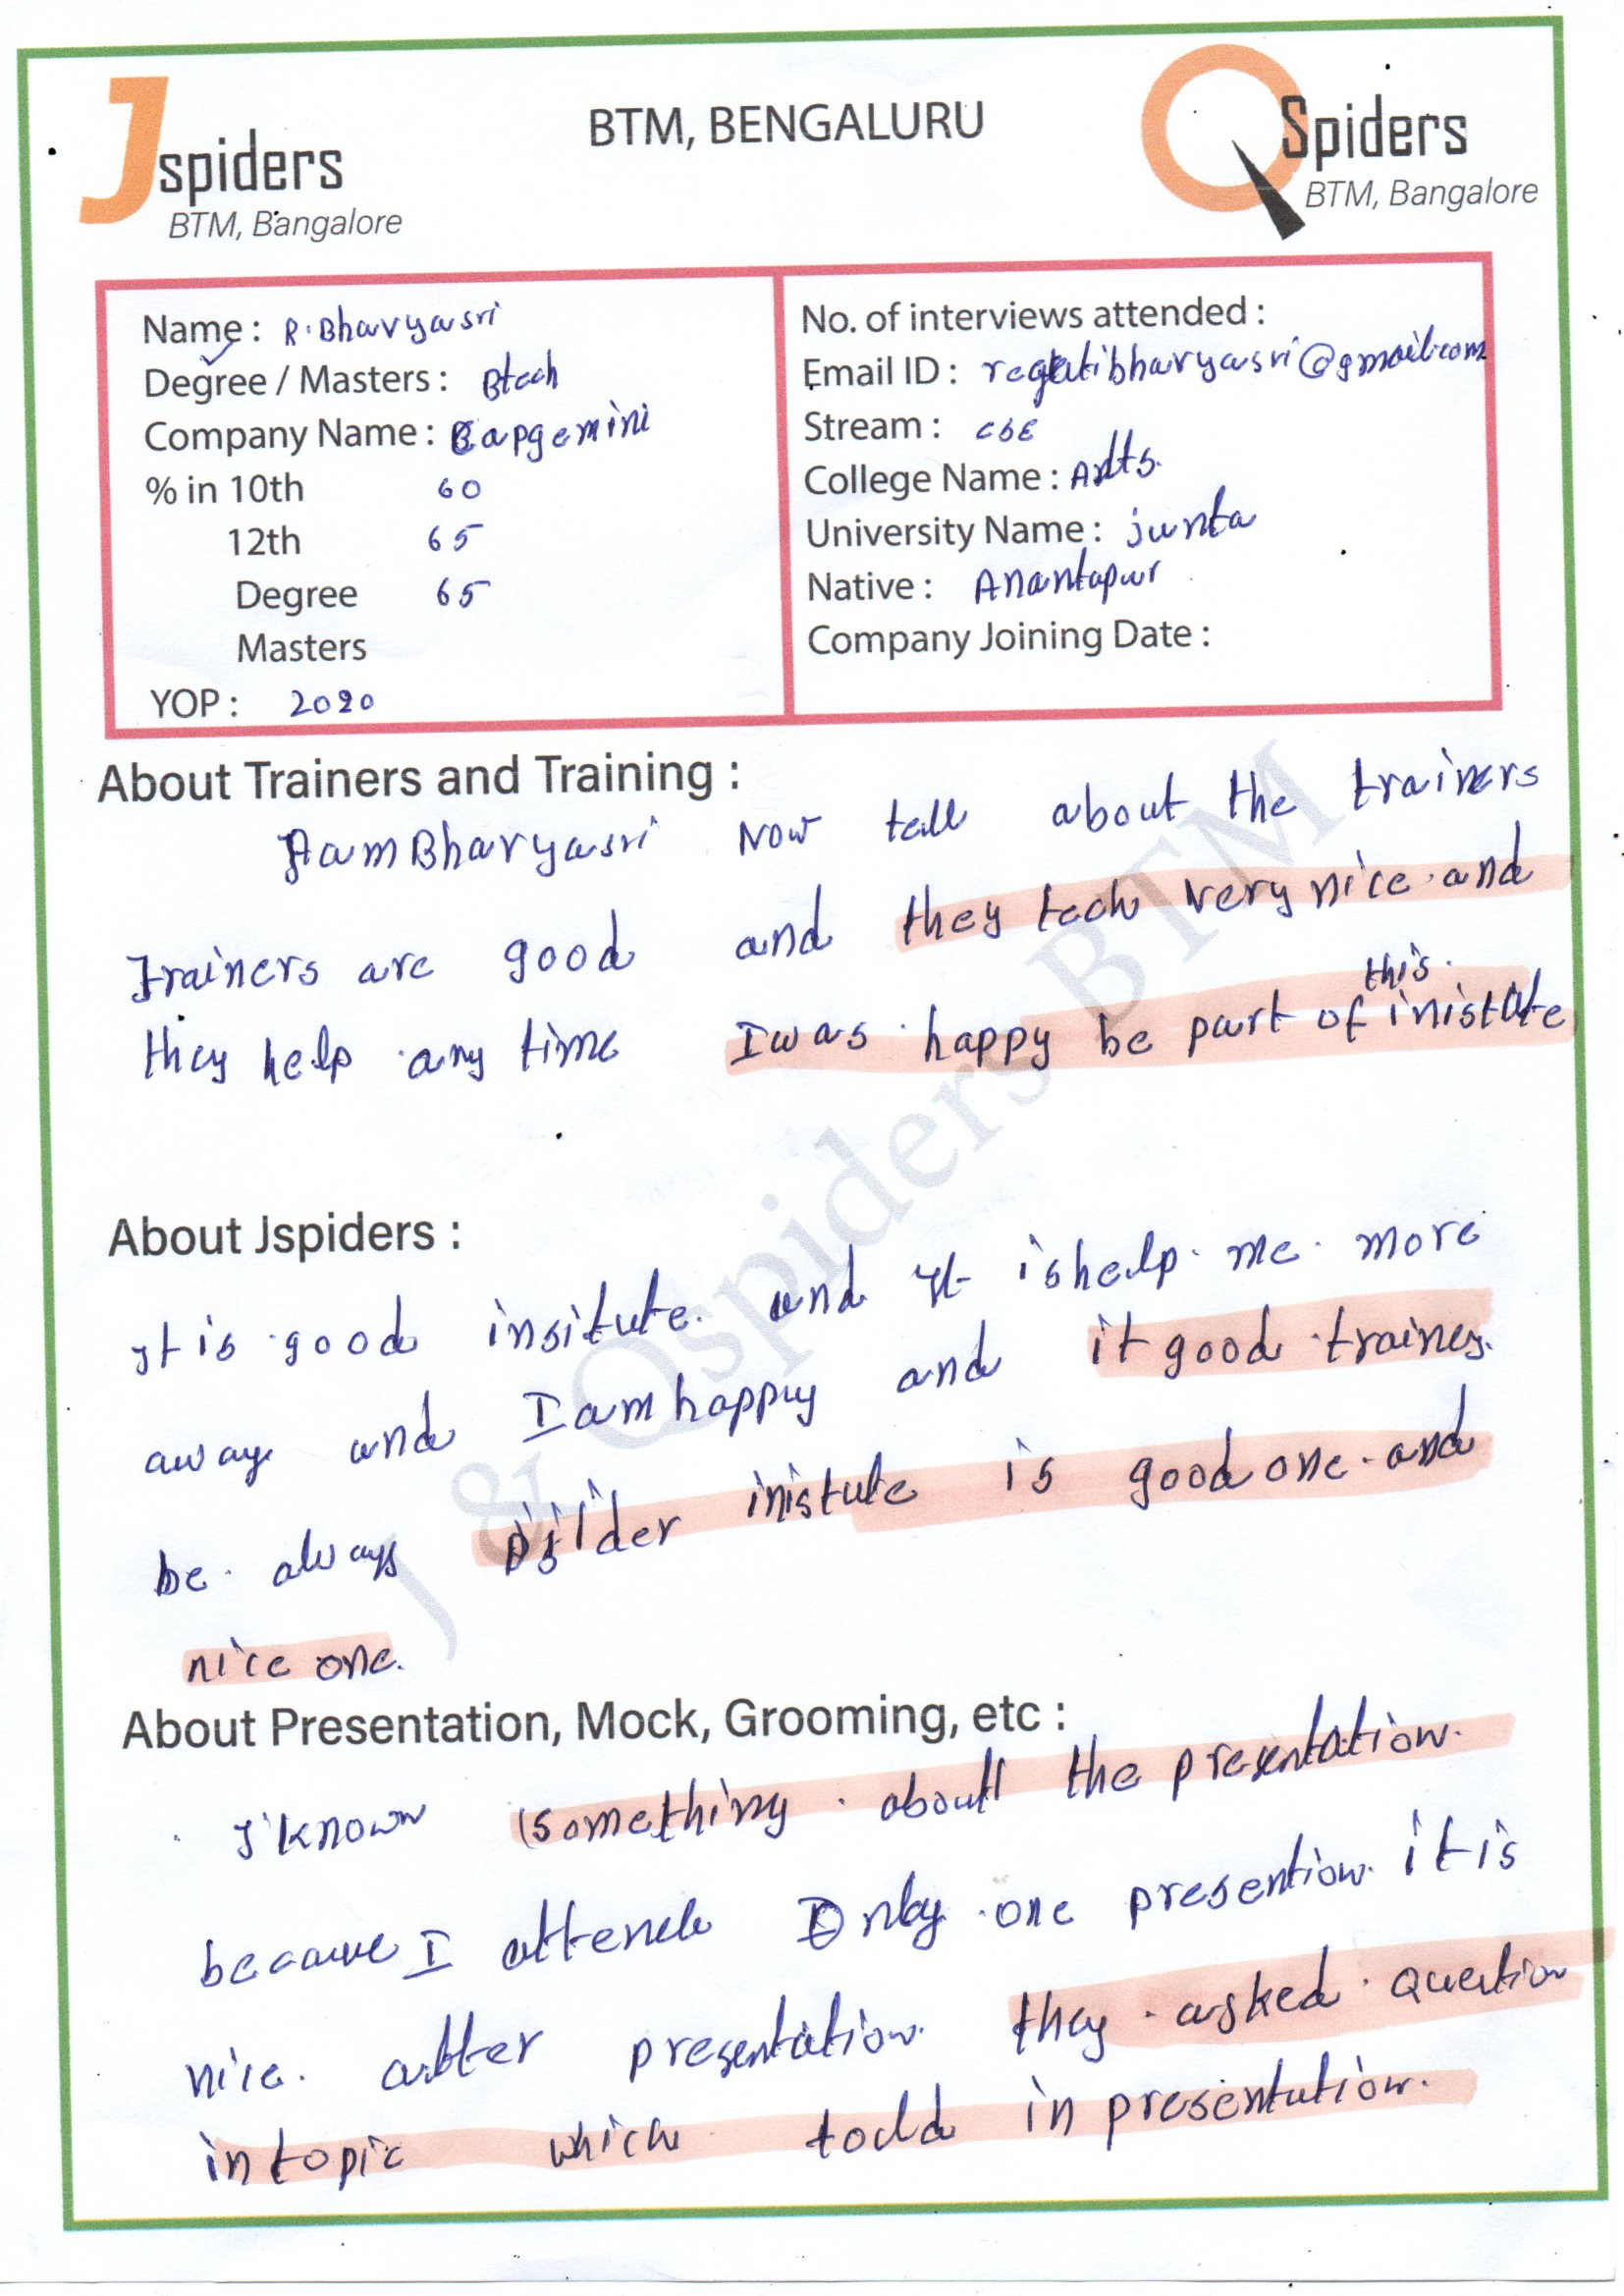 Jspiders
BTM, Bangalore
BTM, BENGALURU
QSpiders
BTM, Bangalore
Name : R.Bhavyasri
Degree / Masters : Btech
Company Name : Capgemini
% in 10th 60
12th 65
Degree 65
Masters
YOP : 2020
No. of interviews attended :
Email ID : @gmail.com
Stream : CSE
College Name :
University Name : junta
Native : Anantapur
Company Joining Date :
About Trainers and Training :
I am Bhavyasri Now tell about the trainers
trainers are good and they tech very nice and
they help any time I was happy be part of this inistute
About Jspiders :
It is good insitute. and It is help me more
away and I am happy and it good traines.
be always inistute is good one and
nice one.
About Presentation, Mock, Grooming, etc :
I known something about the presentation.
because I attend Only one presention it is
nice. after presentation they asked question
in topic which told in presentation.
J & Qspiders BTM